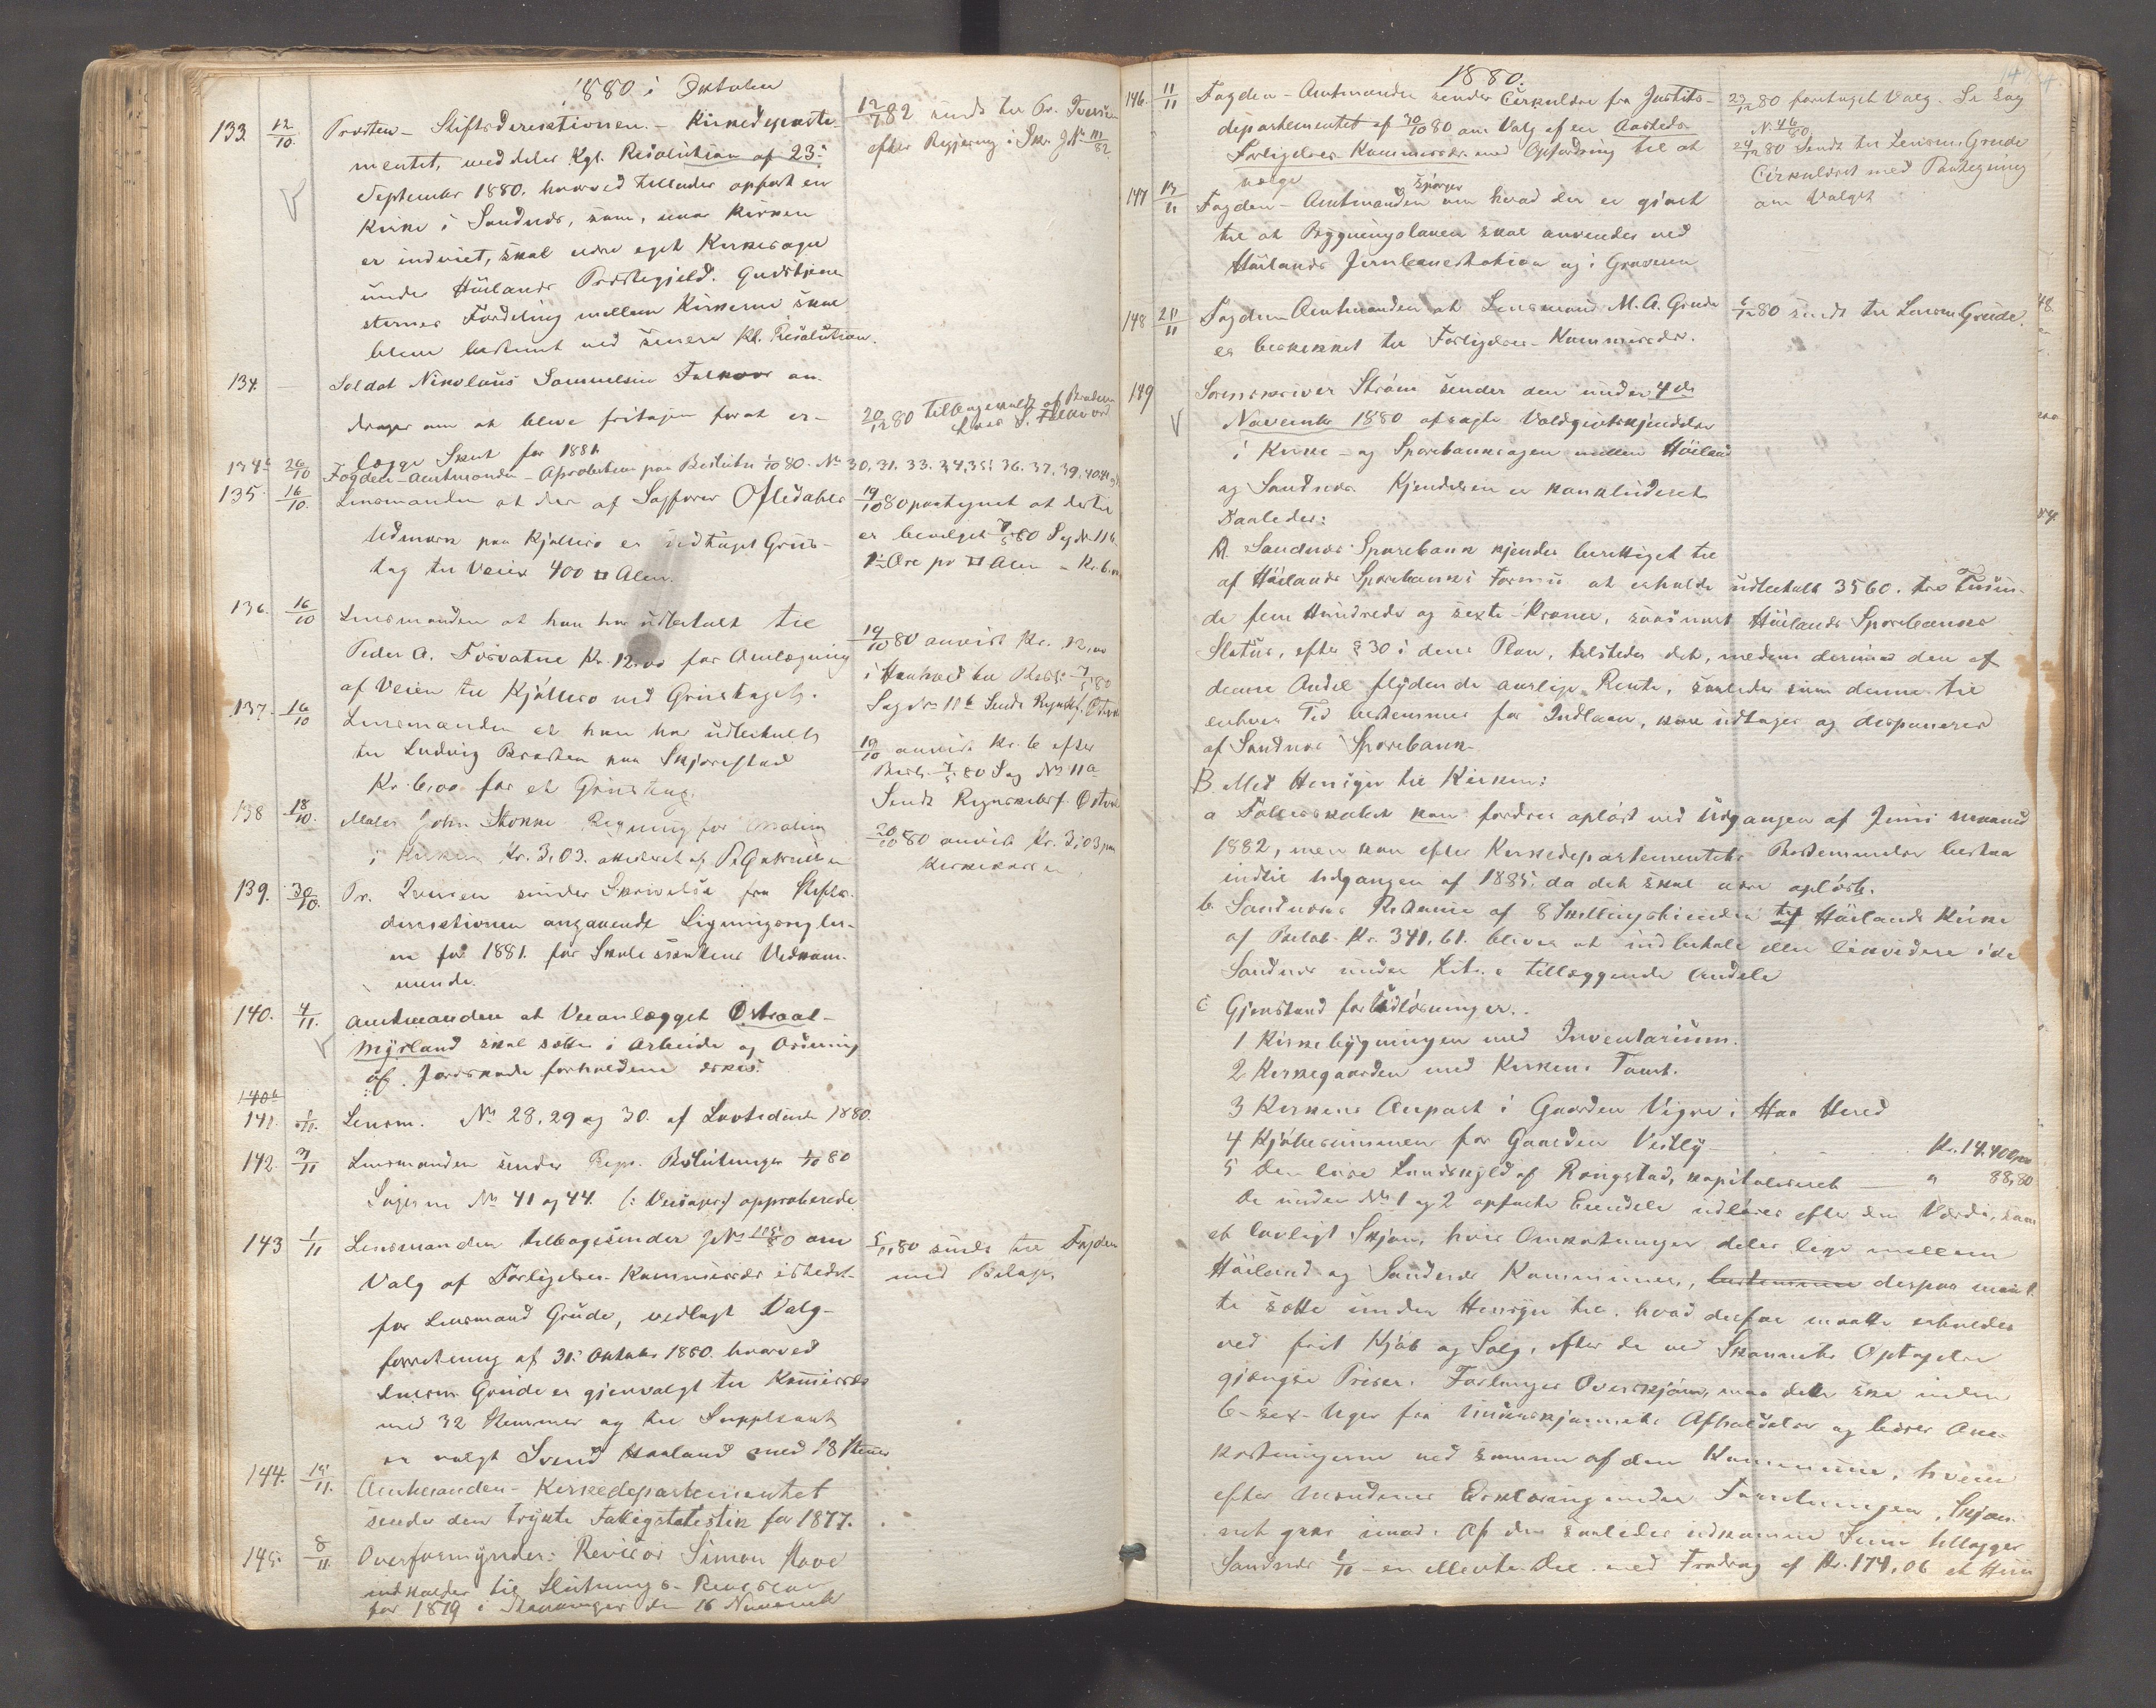 1880 i Oktober
133. 12/10. Provsten – Stiftsdirektionen. – Kirkedeparte-
mentet, meddeler Kgl. Resolution af 23.
September 1880. hvorved tillades opført en
Kirke i Sandnæs, som, naar Kirken
er indviet, skal være eget Kirkesogn
under Höilands Præstegjeld. Gudstjene-
sternes Fordeling mellem Kirkerne skal
blive bestemt ved senere Kl. Resolution.
12/7 82 sendt til Pr. Iversen
efter Begjering i Skr. J No 111/82
134. – Soldat Nikolaus Samuelsen Folkvor an-
drager om at blive fritagen for at er-
lægge Skat for 1881.
20/12 80 tilbagekaldt af Broderen
Lars S. Folkvord
134b 26/10 Fogden – Amtmanden – Aprobation paa Beslutn 1/10 80. No 30, 31. 33. 34, 35, 36. 37. 39, 40
135. 16/10. Lensmanden at der af Sagfører Oftedahls
Udmark paa Kjøllero er udtaget Grus-
tag til Veien 400 □ Alen.
19/10 80 paategnet at dertil
er bevilget 7/5 80 Sag No 11 b.
1½ Øre pr □ Alen = Kr. 6.00
136. 16/10 Lensmanden at han har udbetalt til
Peder A. Fosvatne Kr. 12,00 for Omlægning
af Veien til Kjøllero ved Grustaget.
19/10 80 anvist Kr. 12,00
i Henhold til Besl: 7/5 80
Sag No 11 b Sendt Regnskbf. Østvol
137. 16/10 Lensmanden at han har udbetalt
til Ludvig Braaten paa Skjørestad
Kr. 6,00 for et Grustag.
19/10 anvist Kr. 6 efter
Besl. 7/5 80 Sag No 11 a
Sendt Regnskabsf. Østvol
138 18/10. Maler John Stokke Regning for Maling
i Kirken Kr. 3,03. attesteret af P. Gabrielsen
20/10 80 anvist Kr. 3,03 paa
Kirkekassen
139. 30/10. Pr. Iversen sender Skrivelse fra Stifts-
direktionen angaaende Ligningsregler-
ne for 1881. for Skolevæsenets Vedkom-
mende.
140. 4/11. Amtmanden at Veianlægget Østraat-
Myrland skal sættes i Arbeide og Ordning
af Jordskade forholdene ønskes.
140b
141. 6/11. Lensm. No 28, 29 og 30. af Lovtidende 1880.
142. 3/11 Lensmanden sender Repr. Beslutninger 1/10 80
Sagerne No 41 og 44. (: Veisager) approberede
143 1/11 Lensmanden tilbagesender J No 115/80 om
Valg af Forligelses-Kommissær istedet-
for Lensmand Grude, vedlagt Valg-
forretning af 31. Oktober 1880. hvorved
Lensm. Grude er gjenvalgt til Komissær
med 32 Stemmer og til Suppleant
er valgt Svend Haaland med 18 Stemmer
5/11 80 sendt til Fogden
med Bilage.
144. 15/11. Amtmanden – Kirkedepartementet
sender den trykte Fattigstatistik for 1877.
145. 8/11. Overformynder: Revisor Simon Hove
indkalder til Slutnings-Revision
for 1879 i Stavanger den 16 November
1880.
14
146. 11/11 Fogden – Amtmanden sender Cirkulære fra Justits-
departementet af 30/10 80 om Valg af en Aasteds
Forligelses-Kommissær med Opfordring til at
vælge
23/12 80 foretaget Valg. Se Sag
No 46/80
24/12 80 Sendt til Lensm. Grude
Cirkulæret med Paategning
om Valget
147 13/11 Fogden – Amtmanden spörger om hvad der er gjort
til at Bygningsloven skal anvendes ved
Höilands Jernbanestation og i Graveren
148 25/11 Fogden Amtmanden at Lensmand M. A. Grude
er beskikket til Forligelses-Kommissær.
6/12 80 sendt til Lensm Grude.
149 Sorenskriver Strøm sender den under 4de
November 1880 afsagte Voldgiftskjendelse
i Kirke- og Sparebanksagen mellem Höiland
og Sandnæs Kjendelsen er konkluderet
saaledes:
A. Sandnæs Sparebank kjendes berettiget til
af Höilands Sparebanks Formue at erholde udbetalt 3560. tre Tusin-
de fem Hundrede og sexti Kroner, saasnart Höilands Sparebankes
Status, efter § 30 i dens Plan, tilsteder det, medens derimod den af
denne Andel flydende aarlige Rente, saaledes som denne til
enhver Tid bestemmes for Indlaan, kan udtages og disponeres
af Sandnæs Sparebank.
B. Med Hensyn til Kirken:
a Fællesskabet kan fordres opløst ved Udgangen af Juni Maaned
1882, men kan efter Kirkedepartementets Bestemmelse bestaa
indtil Udgangen af 1885. da det skal være opløst.
b. Sandnæs Restance af 8 Skillingstienden til Höilands Kirke
af Beløb Kr. 341,61. bliver at indbetale eller likvidere i de
Sandnæs under Litr. c tillæggende Andele
c Gjenstand for Udløsninger.
1 Kirkebygningen med Inventarium.
2 Kirkegaarden med Kirkens Tomt.
3 Kirkens Anpart i Gaarden Vigre i Haa Hered
4 Kjøbesummen for Gaarden Vestly Kr. 14,400,00
5 Den løse Landskyld af Rongstad, kapitaliseret – " 88,80
De under No 1 og 2 opførte Eiendele udløses efter den Værdi, som
et lovligt Skjøn, hvis Omkostninger deles lige mellem
Höiland og Sandnæs Kommuner, bestemmer derpaa maat-
te sætte under Hensyn til, hvad derfor maatte erholdes
ved frit Kjøb og Salg, efter de ved Skønnets Optagelse
gjængse Priser. Forlanges Overskjøn, maa dette ske inden
6-sex-Uger fra Underskjønnets Afholdelse og bæres Om-
kostningerne ved samme af den Kommune, hvem
efter Mændenes Erklæring under Forretningen, Skjøn-
net gaar imod. Af den saaledes udkomne Sum tillægges
Sandnæs 1/11 – en ellevte Del. med Fradrag af Kr. 174,06 et Hun